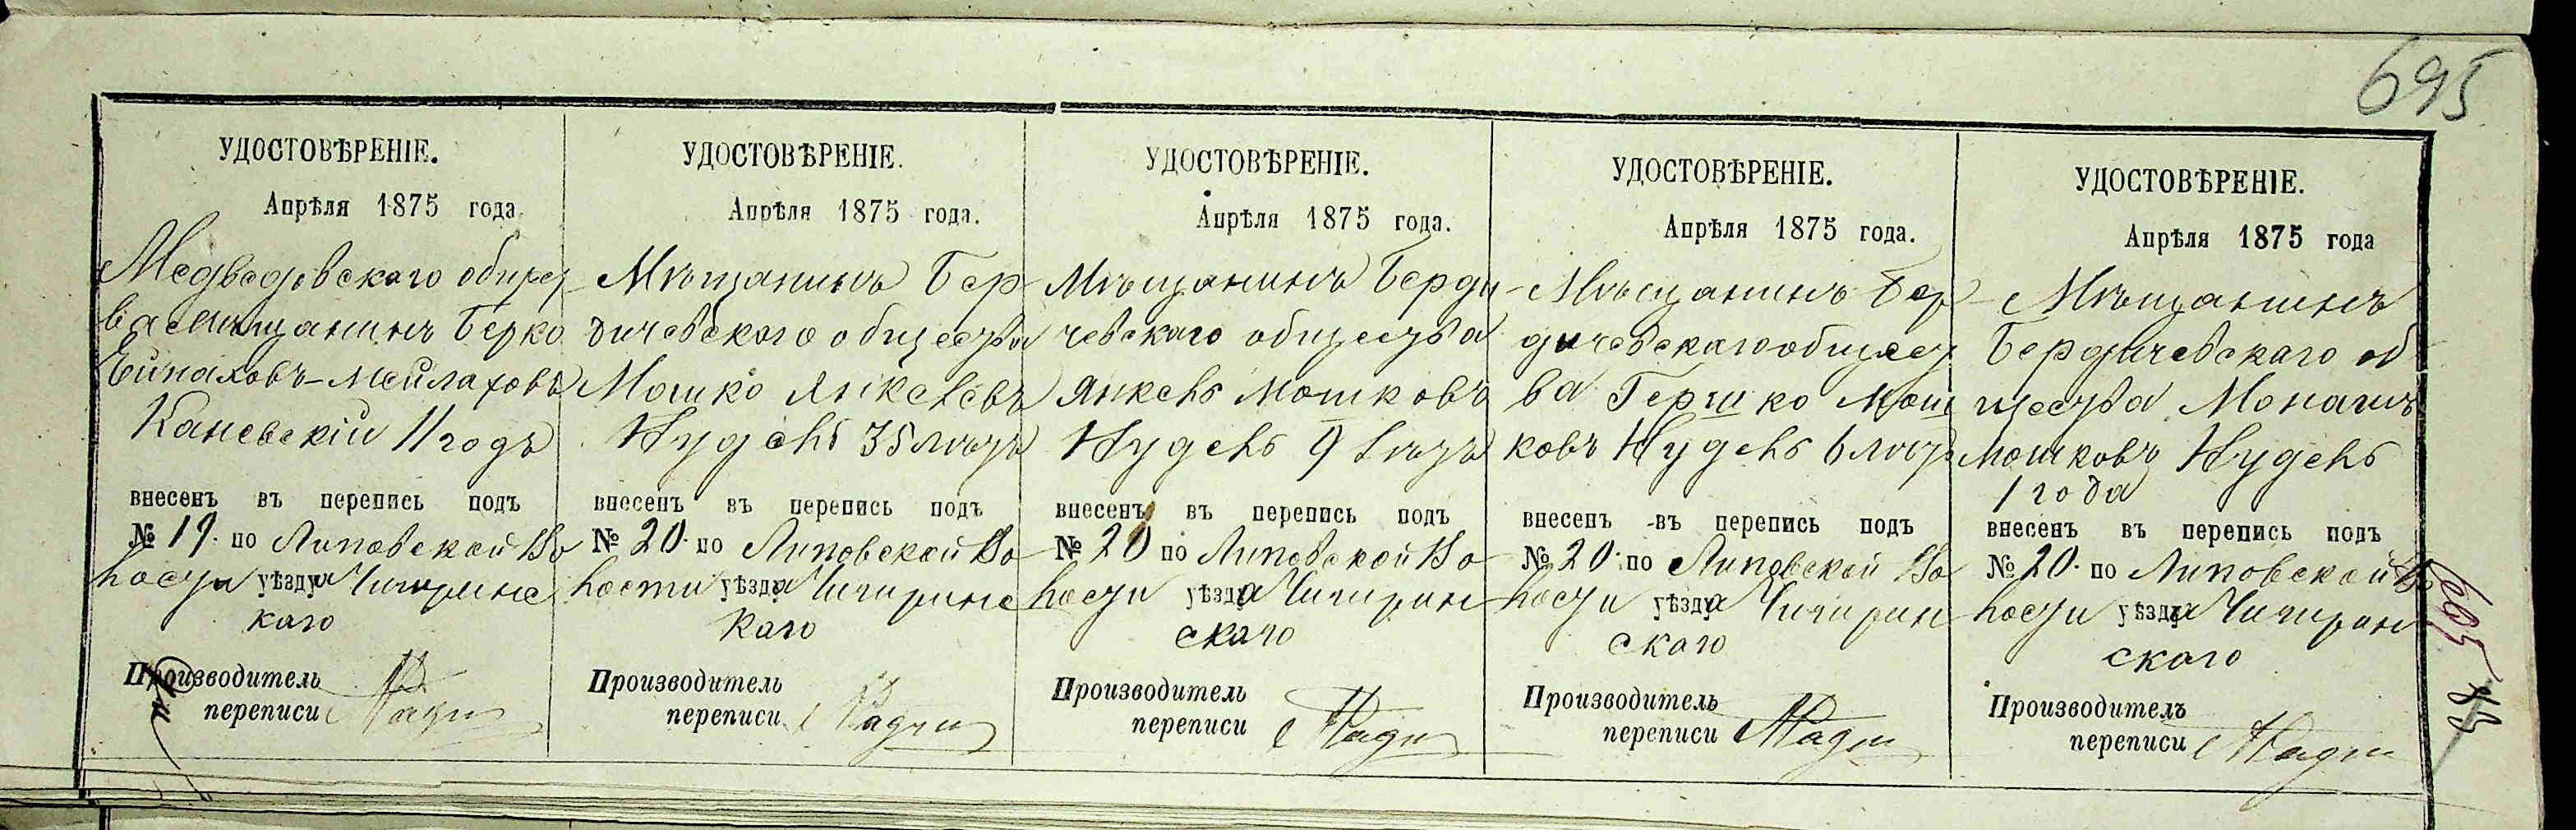 695
УДОСТОВѢРЕНІЕ.
Апрѣля 1875 года.
Медведовскаго общес
ва мѣщанинъ Берко
Ейнаховъ-Мейлаховъ
Каневскій 11 годъ
внесенъ въ перепись подъ
№ 19. по Липовской Во
лости уѣзда Чигиринс
каго
Производитель
переписи
УДОСТОВѢРЕНІЕ.
Апрѣля 1875 года.
Мѣщанинъ Бер
дичевскаго общества
Мошко Янкелевъ
Нудель 35 лѣтъ
внесенъ въ перепись подъ
№ 20. по Липовской Во
лости уѣзда Чигиринс
каго
Производитель
переписи
УДОСТОВѢРЕНІЕ.
Апрѣля 1875 года.
Мѣщанинъ Берди
чевскаго общества
Янкель Мошковъ
Нудель 9 лѣтъ
внесенъ въ перепись подъ
№ 20 по Липовской Во
лости уѣзда Чигирин
скаго
Производитель
переписи
УДОСТОВѢРЕНІЕ.
Апрѣля 1875 года.
Мѣщанинъ Бер
дичевскаго общест
ва Гершко Мош
ковъ Нудель 6 лѣтъ
внесенъ въ перепись подъ
№ 20. по Липовской Во
лости уѣзда Чигирин
скаго
Производитель
переписи
УДОСТОВѢРЕНІЕ.
Апрѣля 1875 года
Мѣщанинъ
Бердичевскаго об
щества Монашъ
Мошковъ Нудель
1 года
внесенъ въ перепись подъ
№ 20. по Липовской Во
лости уѣзда Чигирин
скаго
Производитель
переписи